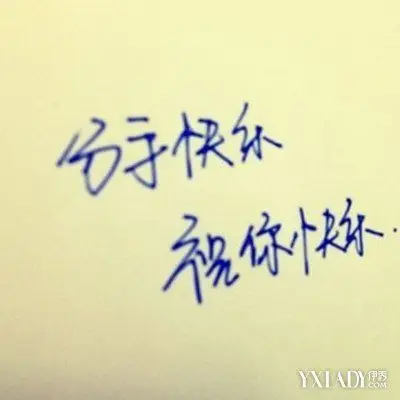 分手快乐
祝你快乐.
YXLADY伊秀
.COM